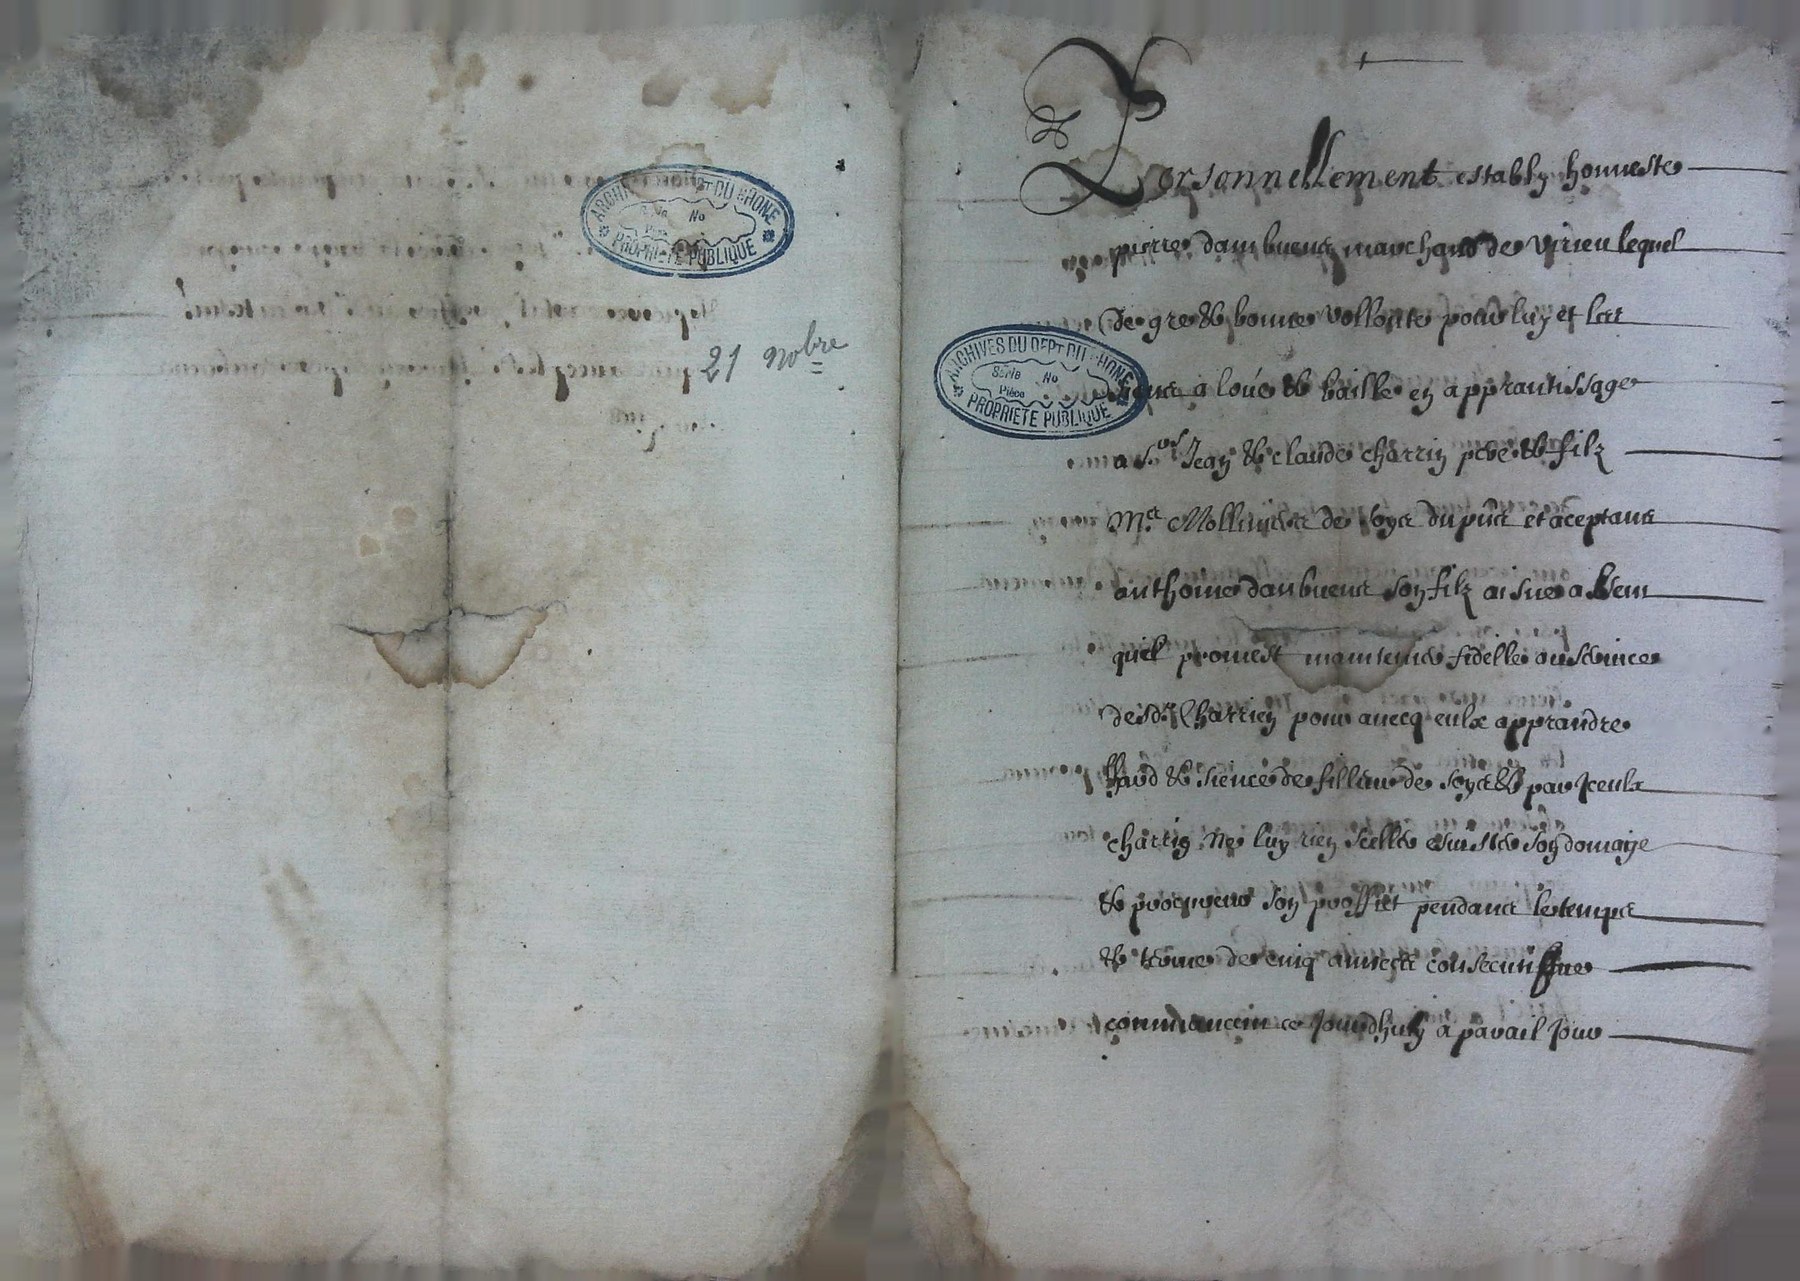 ARCHIVES DU DEPT DU RHONE
Série No
Pièce
PROPRIETE PUBLIQUE
21 Nobre
Personnellement estably honneste
pierre dambuent marchand de Virieu lequel
de gre & bonne vollonte pour luy et les
siens a loué & baille en apprantissage
a Srs Jean & claude charrin pere & filz
Mes Molliniers de soye du puis et aceptans
anthoine dambuent son filz aisne absent
quil promest maintenir fidelle au service
desds Charrin pour avecq eulx apprandre
lard & sience de filleur de soyes & par Iceulx
charrin ne luy rien celler evister son domaige
& procurer son proffict pendant le temps
& terme de cinq annees consecutifve
commancent ce Jourdhuy a pareil Jour
ARCHIVES DU DEPT DU RHONE
Série No
Pièce
PROPRIETE PUBLIQUE